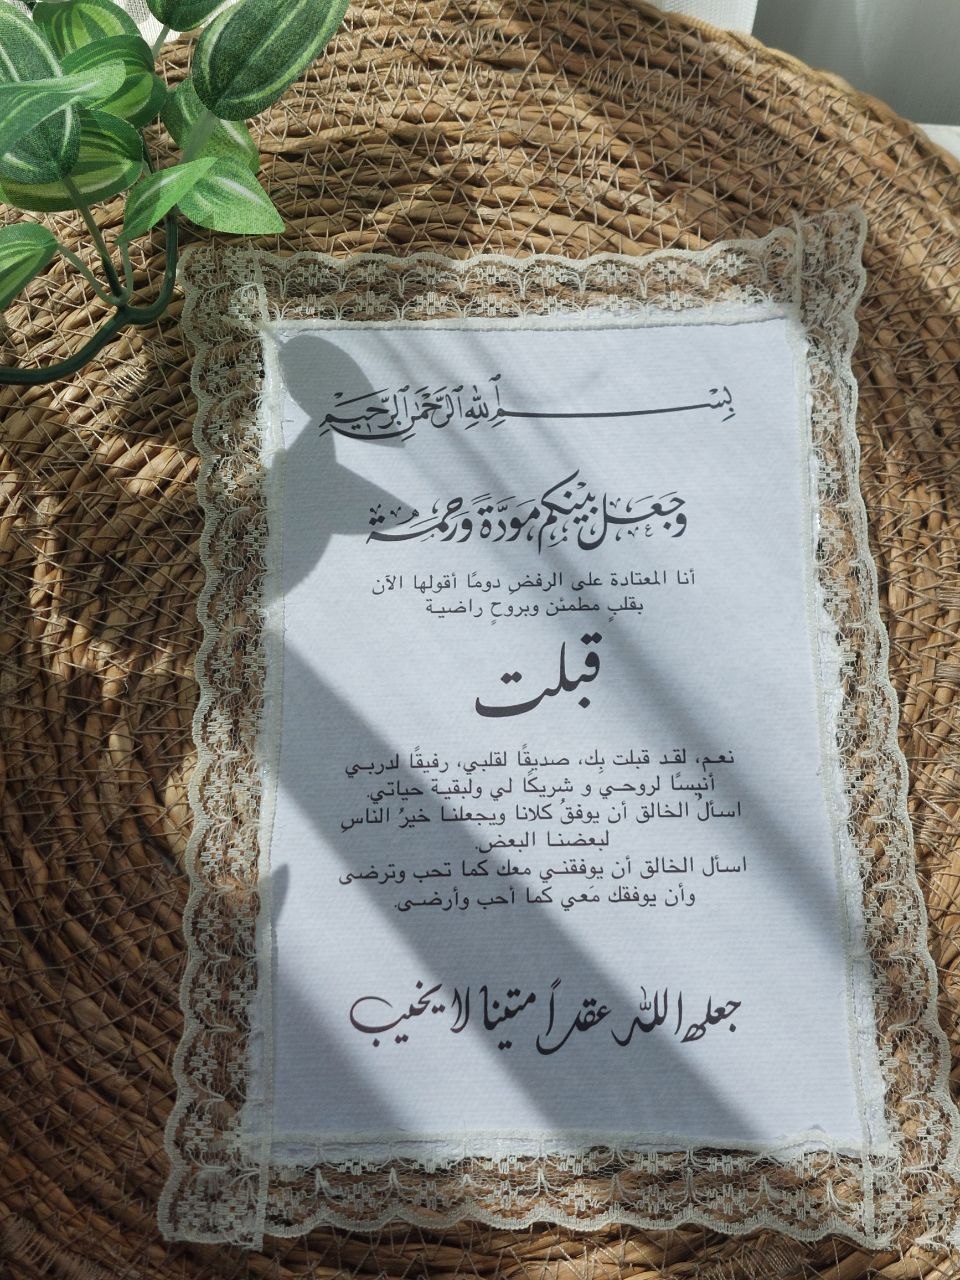 بِسْمِ ٱللَّهِ ٱلرَّحْمَٰنِ ٱلرَّحِيمِ
وَجَعَلَ بَيْنَكُم مَوَدَّةً وَرَحْمَةً
أنا المعتادة على الرفضِ دومًا أقولها الآن
بقلبٍ مطمئن وبروحٍ راضية
قبلت
نعم، لقد قبلت بِك، صديقًا لقلبي، رفيقًا لدربي
أنيسًا لروحي و شريكًا لي ولبقية حياتي.
اسألُ الخالق أن يوفقُ كلانا ويجعلنا خيرُ الناسِ
لبعضنا البعض.
اسأل الخالق أن يوفقني معك كما تحب وترضى
وأن يوفقك مَعي كما أحب وأرضى.
جعله الله عقداً متينا لا يخيب